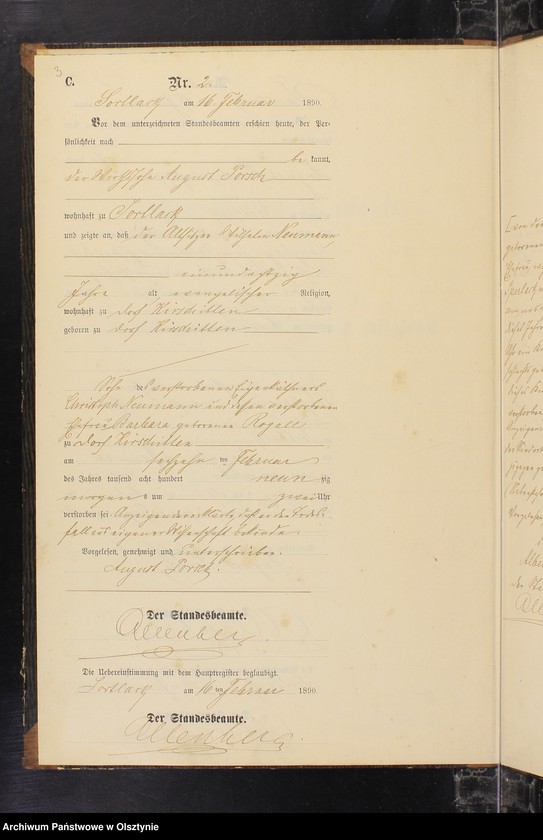 3
C.
Nr. 2.
Sortlack am 16 Februar 1890.
Vor dem unterzeichneten Standesbeamten erschien heute, der Per-
sönlichkeit nach
be kannt,
der Wirthssohn August Porsch
wohnhaft zu Sortlack
und zeigte an, daß der Altsitzer Wilhelm Neumann,
einundachtzig
Jahre alt evangelischer Religion,
wohnhaft zu Dorf
geboren zu Dorf
Sohn des verstorbenen Eigenkäthners
Christoph Neumann und dessen verstorbenen
Ehefrau Barbara geborenen Rogall
zu Dorf
am sechzehn ten Februar
des Jahres tausend acht hundert neun zig
morgens um zwei Uhr
verstorben sei. Anzeigender erklärte, daß er den Todes-
fall aus eigener Wissenschaft bekunde.
Vorgelesen, genehmigt und unterschrieben.
August Porsch.
Der Standesbeamte.
Die Uebereinstimmung mit dem Hauptregister beglaubigt.
Sortlack am 16 ten Februar 1890.
Der Standesbeamte.
Archiwum Państwowe w Olsztynie